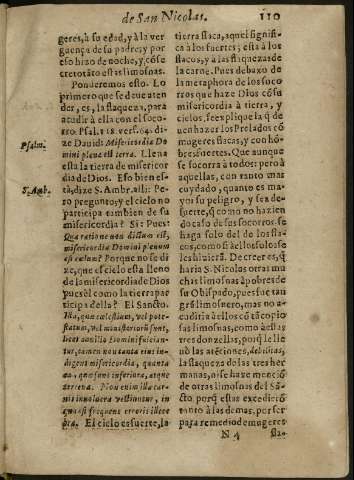 de San Nicolas.
110
geres, à su edad, y à la ver
guença de su padre; y por
eso hizo de noche, y cõ se
creto tãto estas limosnas.
Ponderemos esto. Lo
primero que se deue aten
der, es, la flaqueza, para
acudir à ella con el soco-
rro. Psal. 118. vers. 64. di-
ze Dauid: Misericordia Do
mini plena est terra. Llena
està la tierra de misericor
dia de Dios. Eso bien es-
tà, dize S. Ambr. alli: Pe
ro pregunto; y el cielo no
participa tambien de su
misericordia? Si: Pues:
Qua ratione non dictum est,
misericordia Domini plenum
est cælum? Porque no se di
ze, que el cielo està lleno
de la misericordia de Dios
pues èl como la tierra par
ticipa della? El Sancto.
Illa, quæ cælestium, vel pote-
statum, vel ministeriorũ sunt,
licet auxilio Domini fulcian-
tur, tamen non tanta eius in-
digent misericordia, quanta
ea, quæ sunt inferiora, atque
terrena. Non enim illa car-
nis inuolucra vestiuntur, in
qua est frequens erroris illece
bra. El cielo es fuerte, la
Psalm.
S. Amb.
tierra flaca, aquel signifi-
ca à los fuertes; esta à los
flacos, y à las flaquezas de
la carne. Pues debaxo de
la metaphora de los soco
rros que haze Dios cõ su
misericordia à tierra, y
cielos, fee xplique la q̃ de
uen hazer los Prelados cõ
mugeres flacas, y con hõ-
bres fuertes. Que aunque
se socorra à todos: pero à
aquellas, con tanto mas
cuydado, quanto es ma-
yor su peligro, y sea de-
suerte, q̃ como no hazien
do caso de sus socorros se
haga solo del de los fla-
cos, como si à ellos solos se
les hiuierà. De creer es, q̃
haria S. Nicolas otras mu
chas limosnas à pobres de
su Obispado, pues fue tan
grã limosnero, mas no a-
cudiria à ellos cõ tã copio
sas limosnas, como à estas
tres donzellas, porq̃ le lle
uò las atẽciones, debilitas,
la flaqueza de las tres her
manas, ni se haze menciõ
de otras limosnas del Sã-
cto, porq̃ estas excedierõ
tanto à las demas, por ser
para remedio de mugeres
N 4
fla-